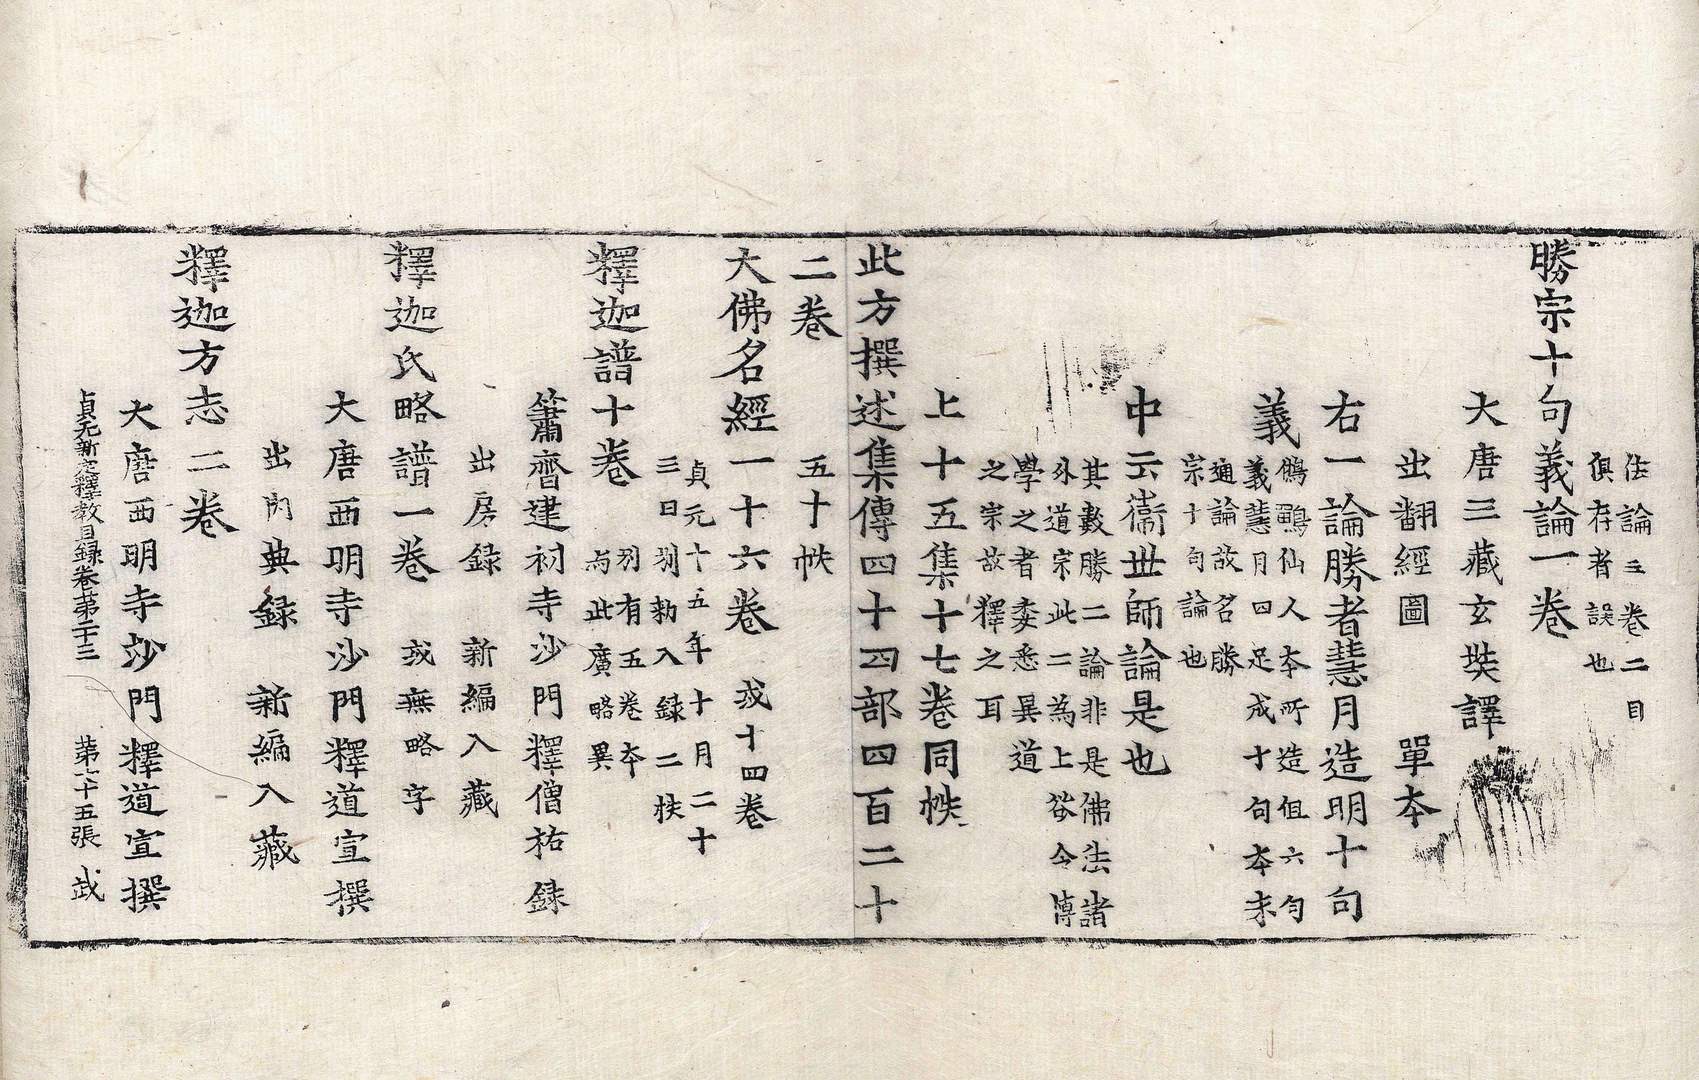 住論三卷二目
俱存者誤也
勝宗十句義論一卷
大唐三藏玄奘譯
出翻經圖　單本
右一論勝者慧月造明十句
義鵂鶹仙人本所造但六句
義慧月四足成十句本末
通論故名勝
宗十句論也
中云衞世師論是也
其數勝二論非是佛法諸
外道宗此二為上欲令傳
學之者委悉異道
之宗故釋之耳
上十五集十七卷同帙
此方撰述集傳四十四部四百二十
二卷　五十帙
大佛名經一十六卷　或十四卷
貞元十五年十月二十
三日別勅入錄二帙
釋迦譜十卷　別有五卷本
与此廣略異
蕭齊建初寺沙門釋僧祐錄
出房錄　新編入藏
釋迦氏略譜一卷　或無略字
大唐西明寺沙門釋道宣撰
出內典錄　新編入藏
釋迦方志二卷
大唐西明寺沙門釋道宣撰
貞元新定釋教目錄卷第二十三　第六十五張　武